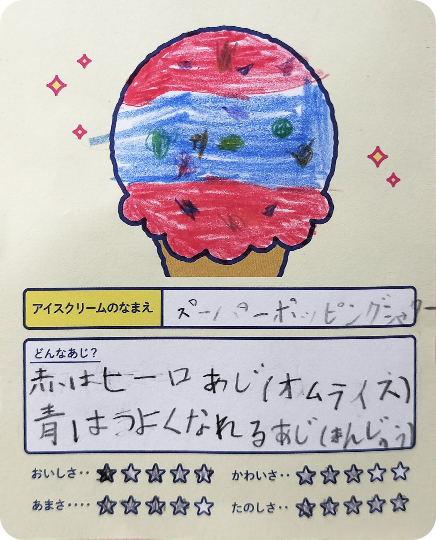 アイスクリームのなまえ
スーパーポッピングシャワー
どんなあじ?
赤はヒーローあじ(オムライス)
青はつよくなれるあじ(はんじゅう)
おいしさ‥ ★★★★★ かわいさ‥ ★★★☆☆
あまさ‥‥ ★★★★☆ たのしさ‥ ★★★★★